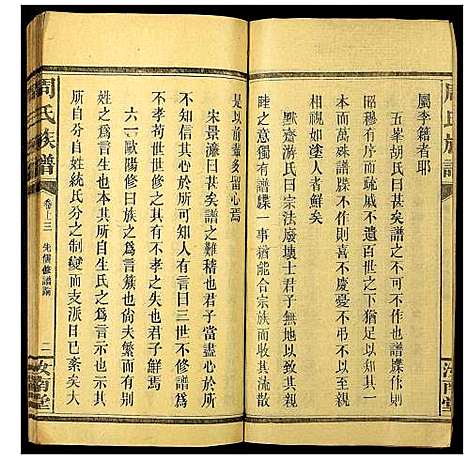 周氏族譜
汝南堂
屬李籍者耶
五峯胡氏曰甚矣譜之不可不作也譜牒作則
昭穆有序而疏戚不遺百世之下猶知其一
本而萬殊譜牒不作則喜不慶憂不弔以至
相視如塗人者鮮矣
默齋游氏曰宗法廢壊士君子欲以其敦宗
睦之意獨有譜牒一事猶能合宗族而收其渙散
是以前輩多留心焉
宋景濂曰甚矣譜之難稽也君子當盡心於所
可知不信其心於所可知者問曰三世不修譜爲
不孝苟世世修之有不孝之失也君子鮮焉
六一歐陽修曰族之爲言簇也尙夫繁而有別也
姓之爲言生也本其所自生氏之爲言示也示其
所自分自姓統氏分之制變而支派日已紊矣大
周氏族譜
卷上三
先儒修譜論
二
汝南堂